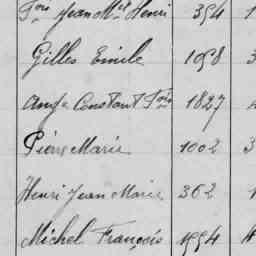 Jean Mie Henri 354 1
Gilles Emile 1098 3
Constant 1827
Pierre Marie 1002 3
Henri Jean Marie 362 1
Michel François 1994 4